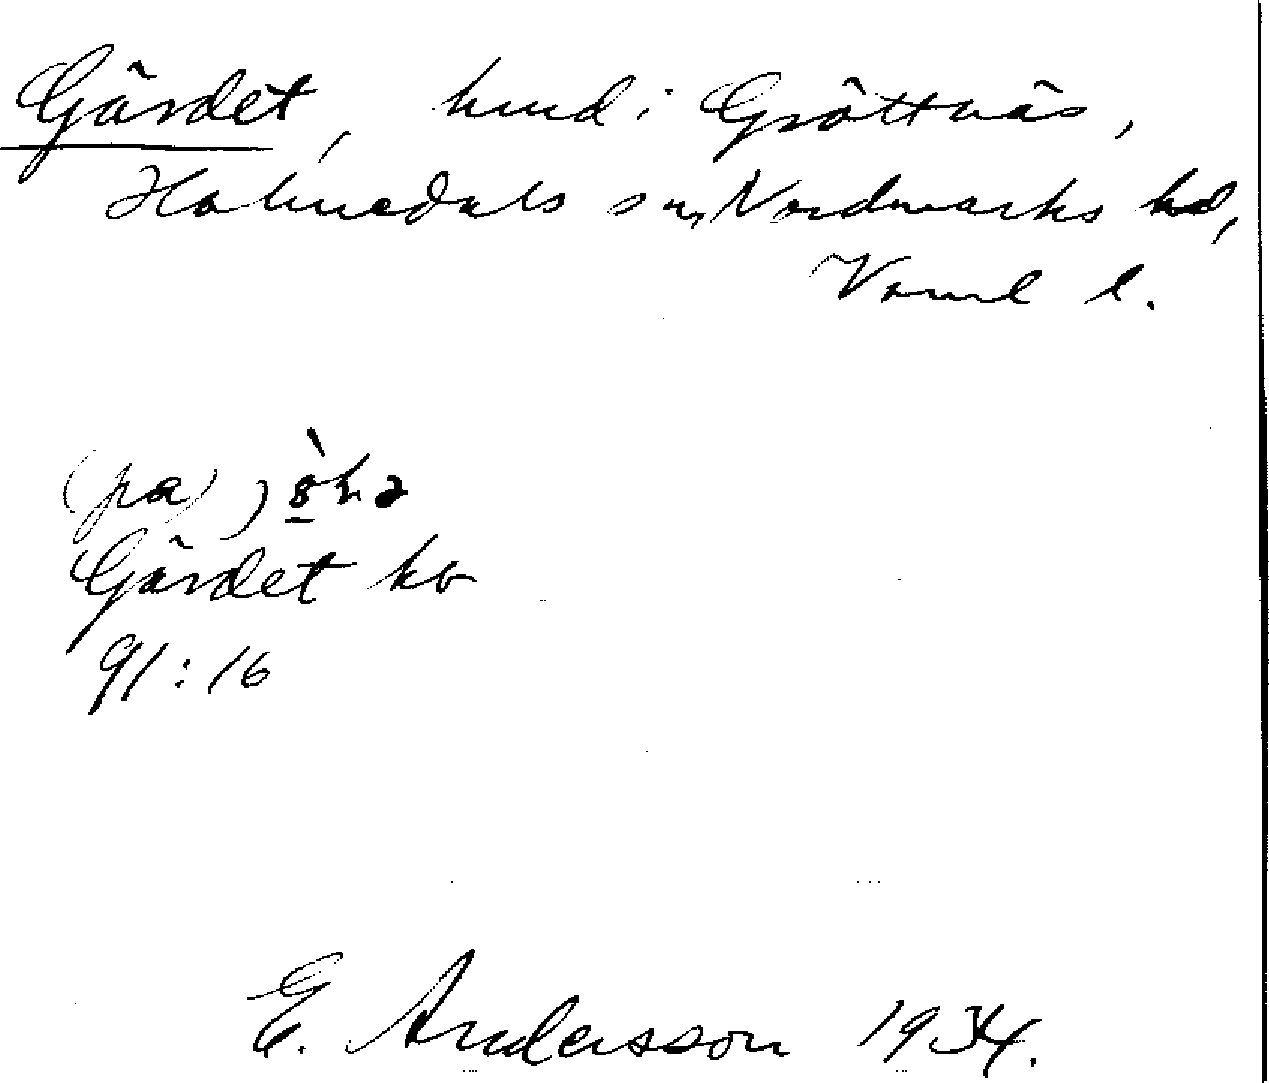 Gärdet, hmd i Gröttväs,
Holmedals sn, Nordmarks hd,
Värml l.
(pa)
Gärdet ko
91:16
E. Andersson 1934.